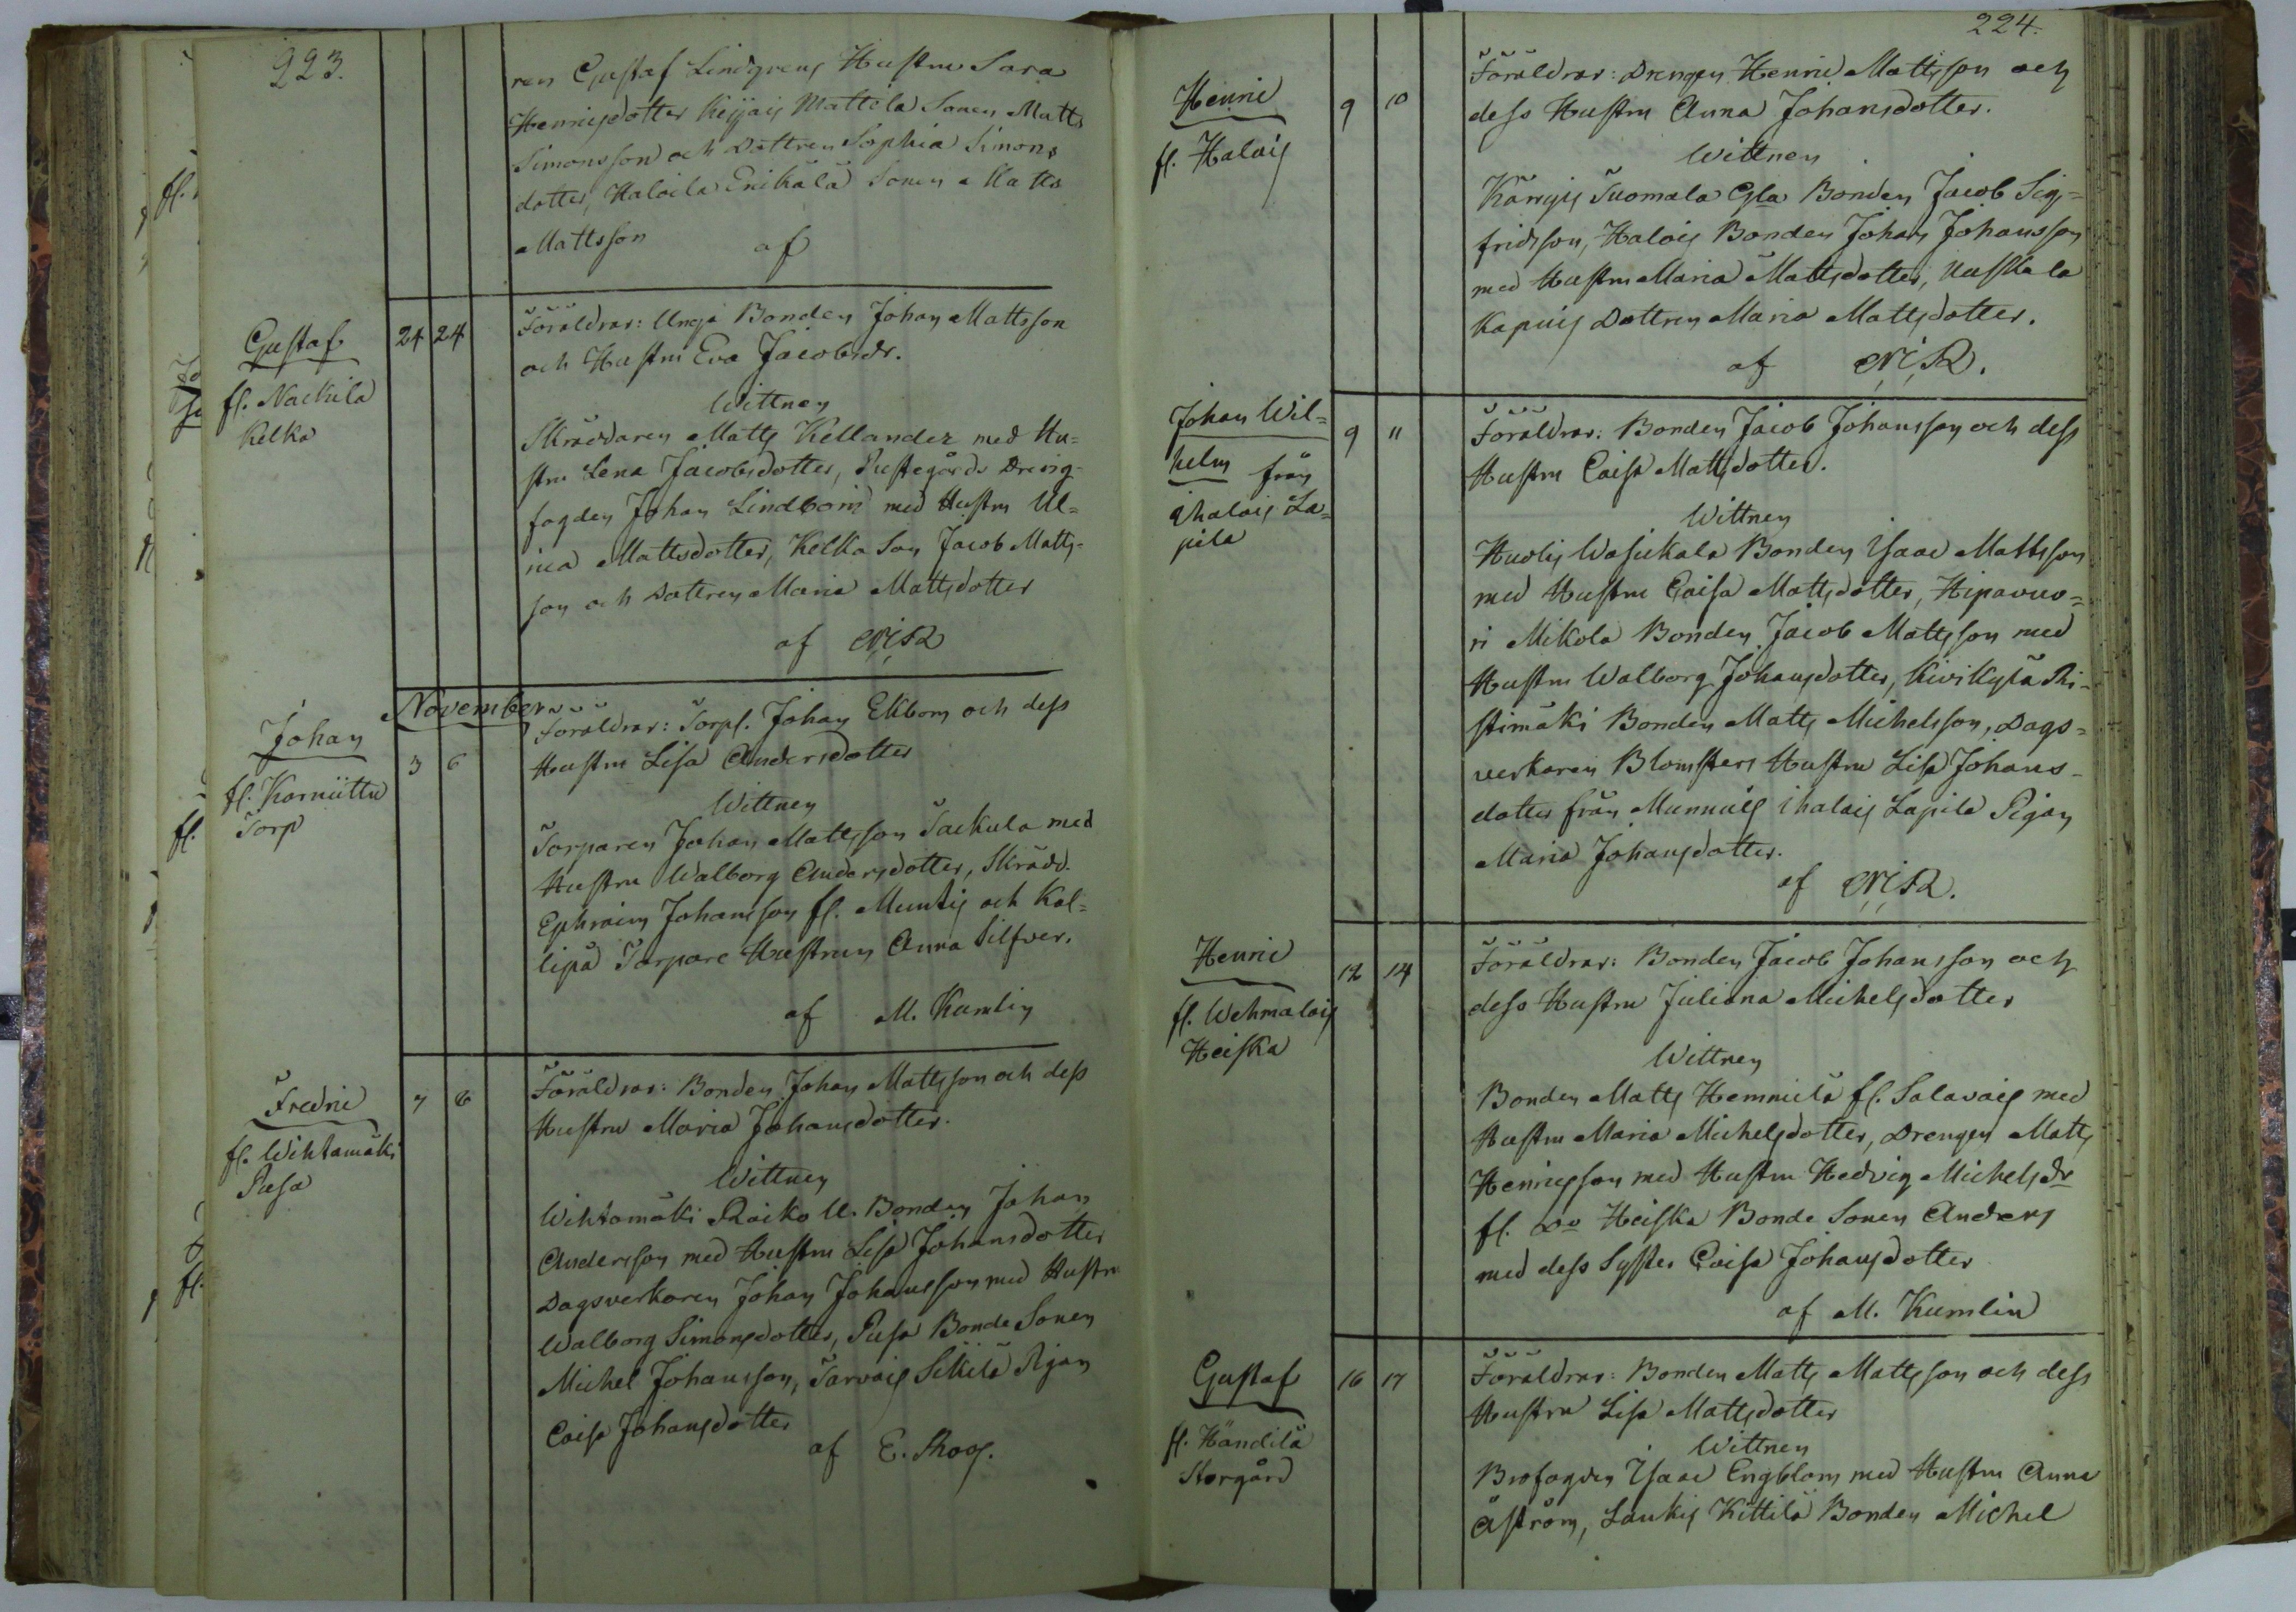 223.
ren Gustaf Lindgrens Hustru Sara
Henricsdotter Keijais Mattila Sonen Matts
Simonsson och Dottren Sophia Simons
dotter, Haloila Erikälä Sonen Matts
Mattsson af
Gustaf
fl. Nackila
Kelka
24 24
Föräldrar: Unga Bonden Johan Mattsson
och Hustru Eva Jacobsdr.
Wittnen
Skräddaren Matts Kellander med Hu=
stru Lena Jacobsdotter, Prestegårds Dreng-
fogden Johan Lindbom med Hustru Ul=
rica Mattsdotter, Kelka Son Jacob Matts-
son och Dottren Maria Mattsdotter
af N.C.R
November
Johan
fl. Korniittu
Torp
3 6
Föräldrar: Torp. Johan Ekbom och dess
Hustru Lisa Andersdotter
Wittnen
Torparen Johan Mattsson Tackula med
Hustru Walborg Andersdotter, Skrädd.
Ephraim Johansson fl. Muntis och Kal=
lipä Torpare Hustrun Anna Silfver.
af M. Kumlin
Fredric
fl. Wihtamäki
Pusa
7 8
Föräldrar: Bonden Johan Mattsson och dess
Hustru Maria Johansdotter.
Wittnen
Wihtamäki Raiko U. Bonden Johan
Andersson med Hustru Lisa Johansdotter
Dagsverkaren Johan Johansson med Hustru
Walborg Simonsdotter, Pusa Bonde Sonen
Michel Johansson, Tarvais Sikilä Pigan
Caisa Johansdotter
af E. Skog.
224.
Henric
fl. Halois
9 10
Föräldrar: Drengen Henric Mattsson och
dess Hustru Anna Johansdotter.
Wittnen
Kärrijs Tuomala Gla Bonden Jacob Sig=
fridsson, Halois Bonden Johan Johansson
med Hustru Maria Mattsdotter, Kuskala
Kapuis Dottren Maria Mattsdotter.
af N.C.R.
Johan Wil=
helm från
Ihalais La=
pila
9 11
Föräldrar: Bonden Jacob Johansson och dess
Hustru Caisa Mattsdotter.
Wittnen
Huolis Wasukala Bonden Isaac Mattsson
med Hustru Caisa Mattsdotter, Hipavuo=
ri Mikola Bonden Jacob Mattsson med
Hustru Walborg Johansdotter, Kivikylä Ri-
stimäki Bonden Matts Michelsson, Dags=
verkaren Blomsters Hustru Lisa Johans-
dotter från Munnuis Ihalais Lapila Pigan
Maria Johansdotter.
af N.C.R.
Henric
fl. Wehmalois
Heiska
12 14
Föräldrar: Bonden Jacob Johansson och
dess Hustru Juliana Michelsdotter
Wittnen
Bonden Matts Hemmilä fl. Salavais med
Hustru Maria Michelsdotter, Drengen Matts
Henricsson med Hustru Hedvig Michelsdr
fl. Do Heiska Bonde Sonen Anders
med dess Syster Caisa Johansdotter
af M. Kumlin
Gustaf
fl. Händilä
Storgård
16 17
Föräldrar: Bonden Matts Mattsson och dess
Hustru Lisa Mattsdotter
Wittnen
Brofogden Isaac Engblom med Hustru Anna
Åström, Laukis Kittilä Bonden Michel